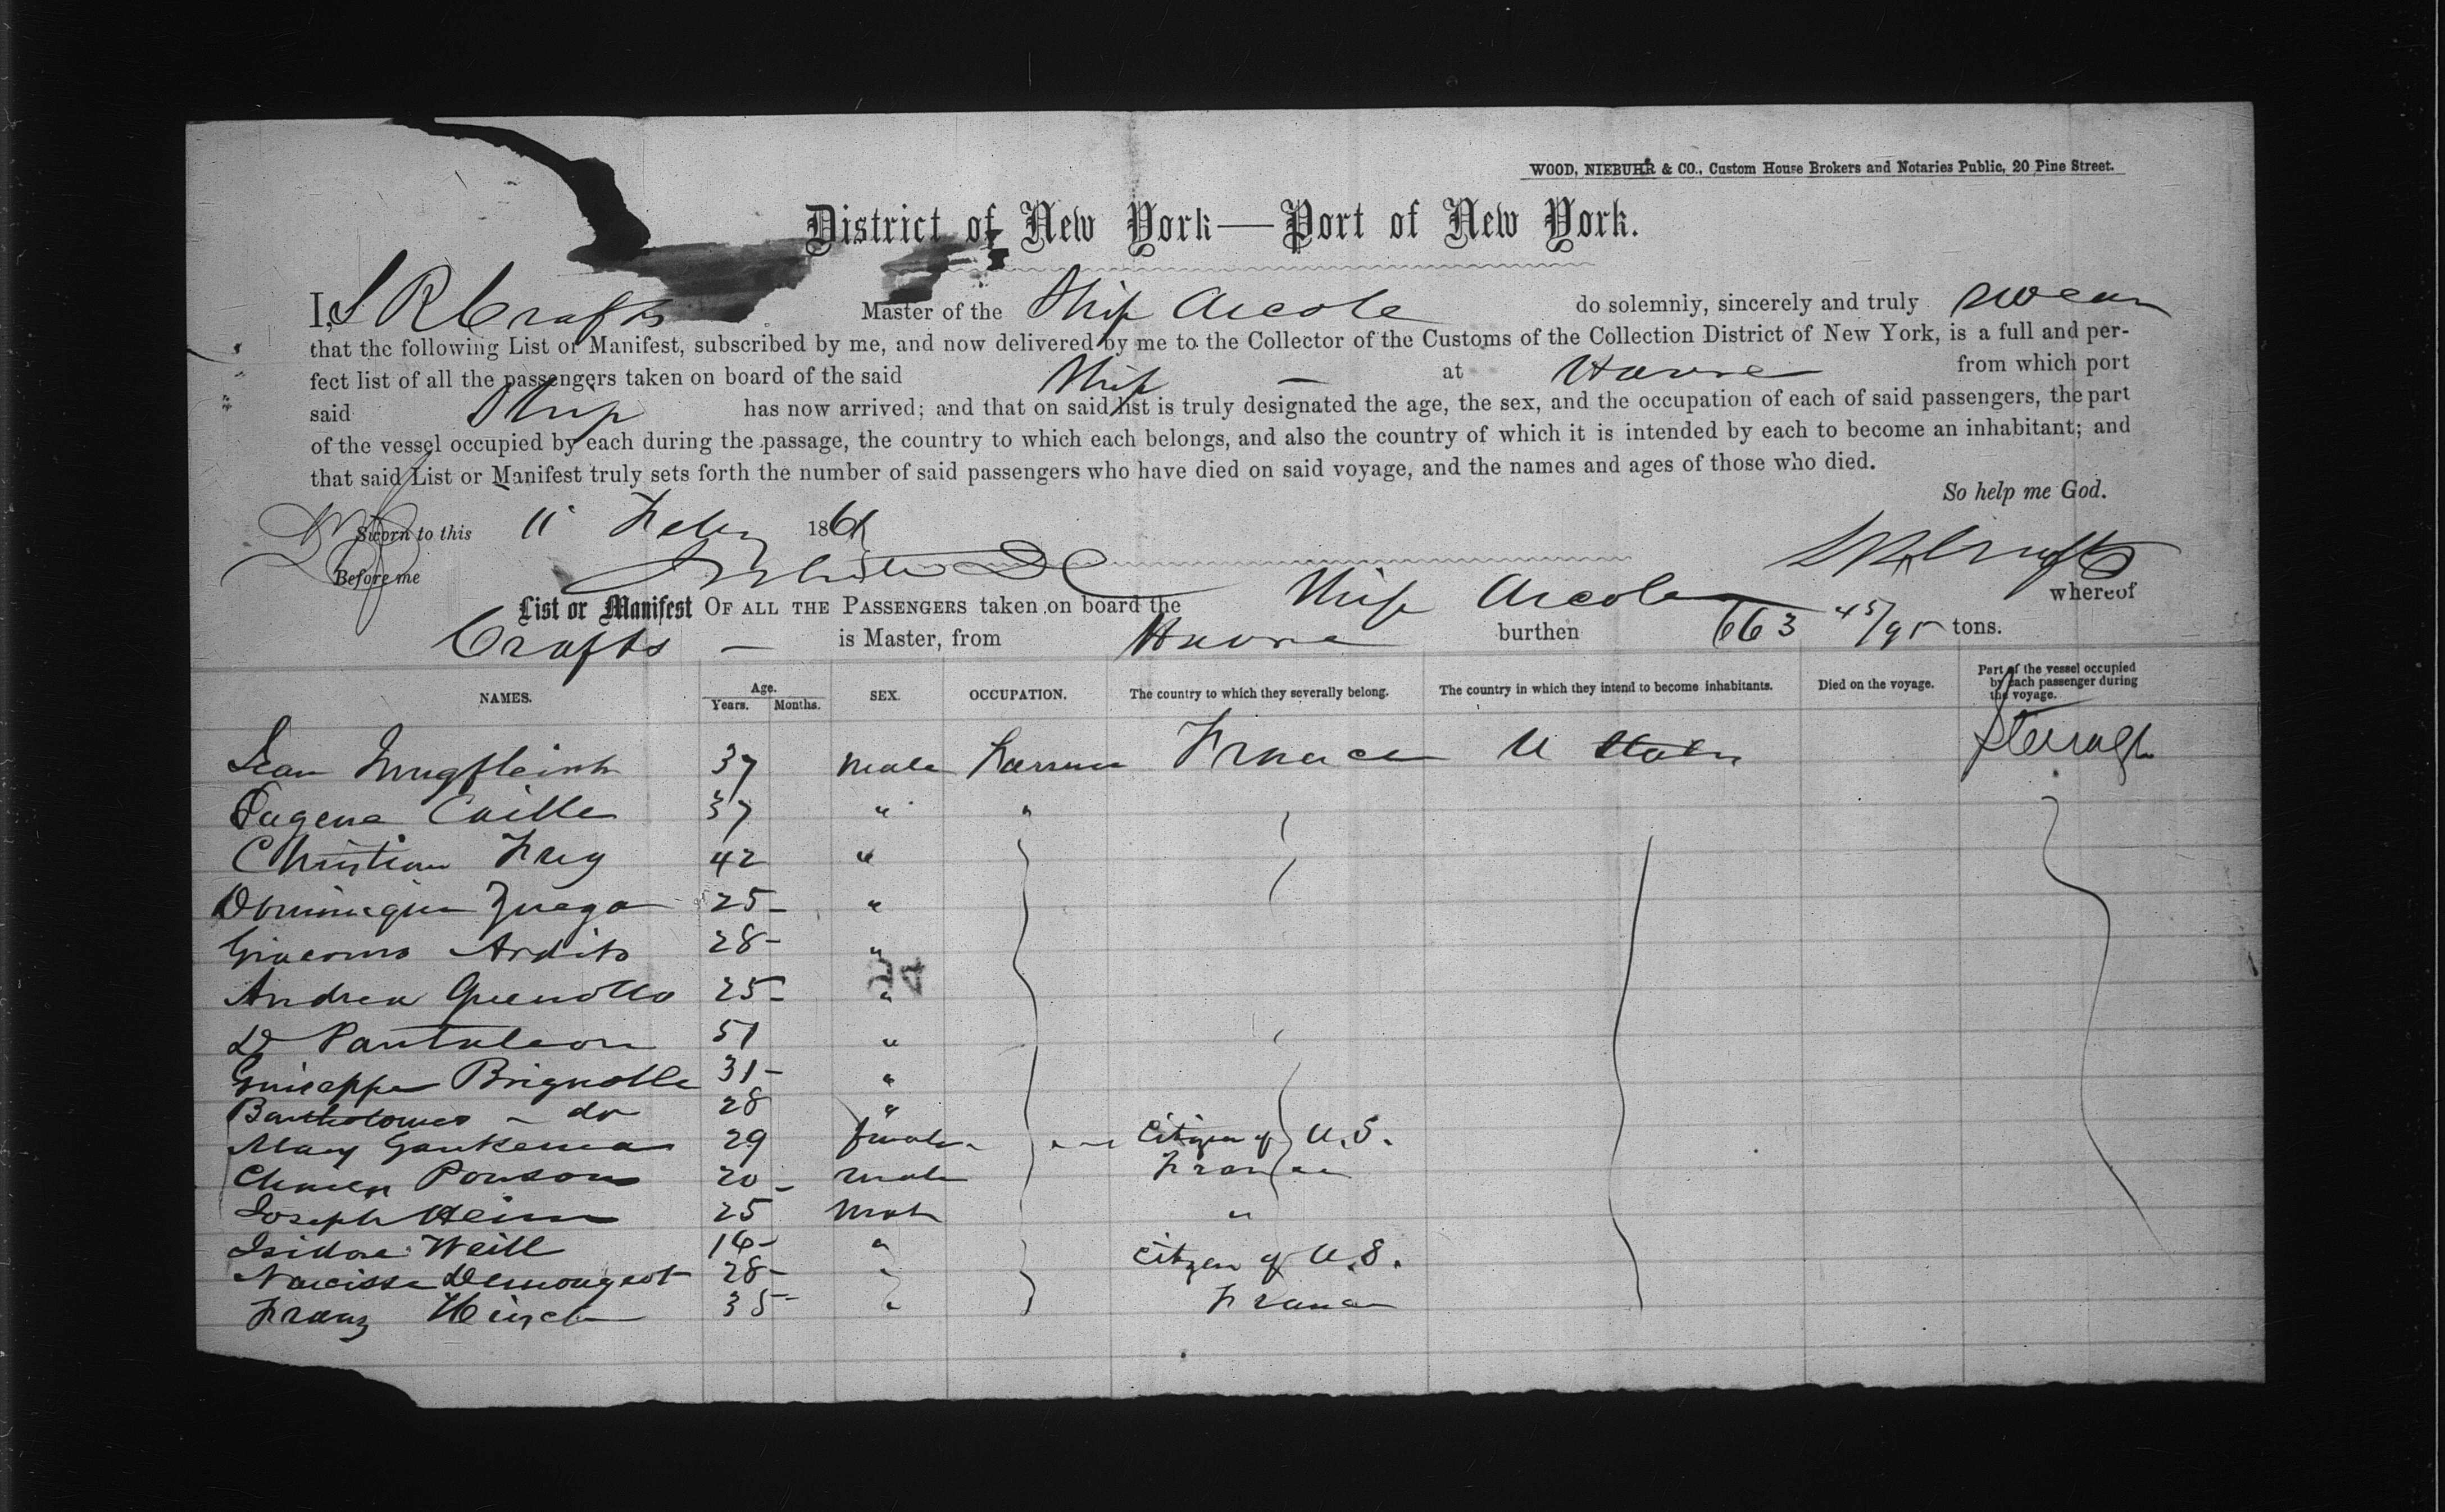 WOOD, NIEBUHR & CO., Custom House Brokers and Notaries Public, 20 Pine Street.
District of New York—Port of New York.
I, S R Crafts Master of the Ship Arcole do solemnly, sincerely and truly swear
that the following List or Manifest, subscribed by me, and now delivered by me to the Collector of the Customs of the Collection District of New York, is a full and per-
fect list of all the passengers taken on board of the said Ship — at Havre from which port
said Ship has now arrived; and that on said list is truly designated the age, the sex, and the occupation of each of said passengers, the part
of the vessel occupied by each during the passage, the country to which each belongs, and also the country of which it is intended by each to become an inhabitant; and
that said List or Manifest truly sets forth the number of said passengers who have died on said voyage, and the names and ages of those who died.
So help me God.
Sworn to this 11 Feby 1861
S R Crafts
Before me
List or Manifest OF ALL THE PASSENGERS taken on board the Ship Arcole whereof
Crafts — is Master, from Havre burthen 663 45/95 tons.
NAMES. Age. Years. Months. SEX. OCCUPATION. The country to which they severally belong. The country in which they intend to become inhabitants. Died on the voyage. Part of the vessel occupied by each passenger during the voyage.
Jean 37 Male France U States
Eugene Caille 37 " "
Christian Frey 42 "
Dominique 25 "
Giacomo Ardito 28 "
Andrea 25 "
24
D Pantaleon 51 "
Guiseppe Brignolle 31 "
Bartholomeo - do 28 "
Mary 29 female Citizen of U.S.
Ponson 20 male France
Joseph Heim 25 Male "
Isidore Weill 14 " Citizen of U.S.
Narcisse Demougeot 28 "
Franz Hirsch 35 " France